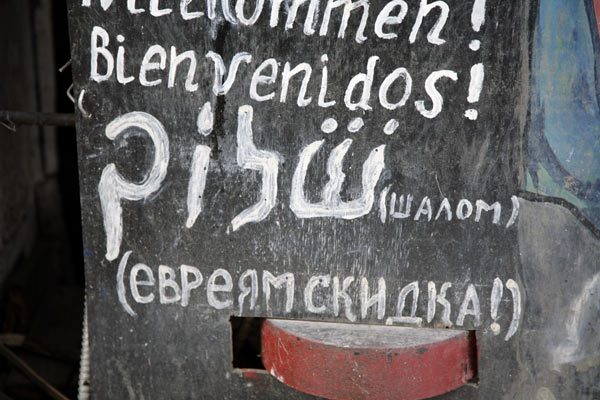 Willkommen!
Bienvenidos!
שלום (ШАЛОМ)
(ЕВРЕЯМ СКИДКА!)